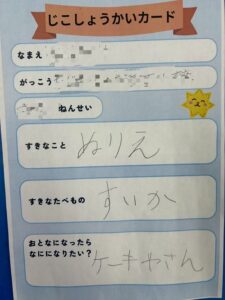 じこしょうかいカード
なまえ
がっこう
ねんせい
すきなこと ぬりえ
すきなたべもの すいか
おとなになったら
なにになりたい？ ケーキやさん